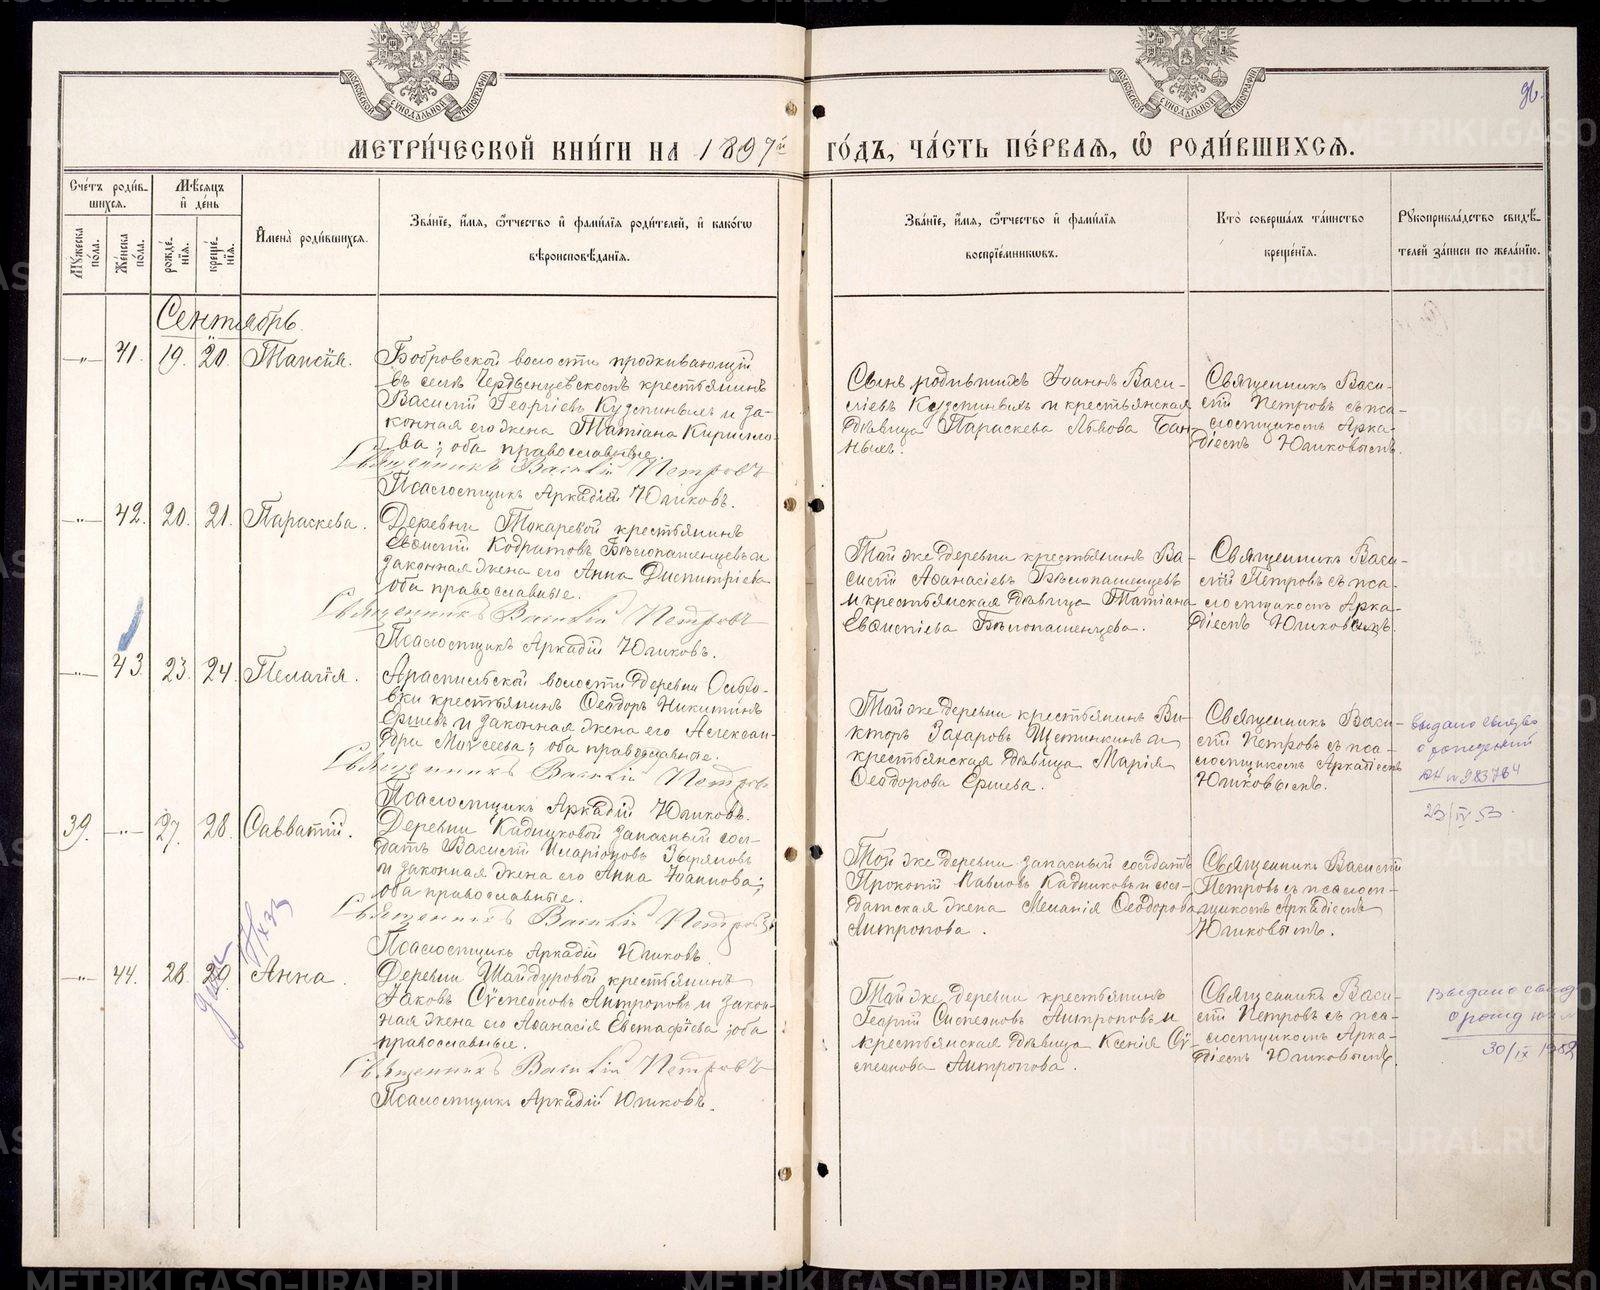 МОСКОВСКОЙ СѴНОДАЛЬНОЙ ТИПОГРАФІИ
МОСКОВСКОЙ СѴНОДАЛЬНОЙ ТИПОГРАФІИ
96.
МЕТРИ́ЧЕСКОЙ КНИ́ГИ НА 1897й ГО́ДЪ, ЧА́СТЬ ПЕ́РВАЯ, Ѽ РОДИ́ВШИХСЯ.
Сче́тъ роди́в-
шихся.
Мꙋ́жеска по́ла.
Же́нска по́ла.
Мѣ́сяцъ
и҆ де́нь
рожде́нїя.
креще́нїя.
И҆мена̀ роди́вшихся.
Зва́нїе, и҆́мя, ѻ҆́тчество и҆ фами́лїя роди́телей, и҆ како́гѡ
вѣроисповѣ́данїя.
Зва́нїе, и҆́мя, ѻ҆́тчество и҆ фами́лїя
воспрїе́мникѡвъ.
Кто̀ соверша́лъ та́инство
креще́нїя.
Рꙋкоприкла́дство свидѣ́-
телей за́писи по жела́нїю.
Сентябрь
-"- 41. 19. 20. Таисія.
Бобровской волости проживающій
въ селѣ Чердынцевскомъ крестьянинъ
Василій Георгіевъ Кузминыхъ и за-
конная его жена Татіана Кирилло-
ва; оба православные.
Священникъ Василій Петровъ
Псаломщикъ Аркадій Юшковъ.
Сынъ родившихъ Іоаннъ Васи-
ліевъ Кузминыхъ и крестьянская
дѣвица Параскева Львова Бан-
ныхъ.
Священникъ Васи-
лій Петровъ съ пса-
ломщикомъ Арка-
діемъ Юшковымъ.
-"- 42. 20. 21. Параскева.
Деревни Токаревой крестьянинъ
Кодратовъ Бѣлопашенцевъ и
законная жена его Анна Димитріева
оба православные.
Священникъ Василій Петровъ
Псаломщикъ Аркадій Юшковъ.
Той же деревни крестьянинъ Ва-
силій Аѳанасіевъ Бѣлопашенцевъ
и крестьянская дѣвица Татіана
Бѣлопашенцева.
Священникъ Васи-
лій Петровъ съ пса-
ломщикомъ Арка-
діемъ Юшковымъ.
-"- 43. 23. 24. Пелагія.
Арамильской волости деревни Ольхо-
вки крестьянинъ Ѳеодоръ Никитинъ
Ершевъ и законная жена его Алексан-
дра Моисеева; оба православные.
Священникъ Василій Петровъ
Псаломщикъ Аркадій Юшковъ.
Той же деревни крестьянинъ Ви-
кторъ Захаровъ Щетинкинъ и
крестьянская дѣвица Марія
Ѳеодорова Ершева.
Священникъ Васи-
лій Петровъ съ пса-
ломщикомъ Аркадіемъ
Юшковымъ.
Выдано свид-во
о рождении
23/IV 53.
39. -"- 27. 28. Савватій.
Деревни Кадниковой запасный сол-
датъ Василій Иларіоновъ Зыряновъ
и законная жена его Анна Іоаннова;
оба православные.
Священникъ Василій Петровъ
Псаломщикъ Аркадій Юшковъ.
Той же деревни запасный солдатъ
Прокопій Павловъ Кадниковъ и сол-
датская жена Меланія Ѳеодорова
Антропова.
Священникъ Василій
Петровъ съ псалом-
щикомъ Аркадіемъ
Юшковымъ.
-"- 44. 28. Анна.
Деревни Шайдуровой крестьянинъ
Іаковъ Сѵмеоновъ Антроповъ и закон-
ная жена его Аѳанасія Евстафіева; оба
православные.
Священникъ Василій Петровъ
Псаломщикъ Аркадій Юшковъ.
Той же деревни крестьянинъ
Георгій Симеоновъ Антроповъ и
крестьянская дѣвица Ксенія Сѵ-
меонова Антропова.
Священникъ Васи-
лій Петровъ съ пса-
ломщикомъ Арка-
діемъ Юшковымъ.
Выдано свид
о рожд
METRIKI.GASO-URAL.RU